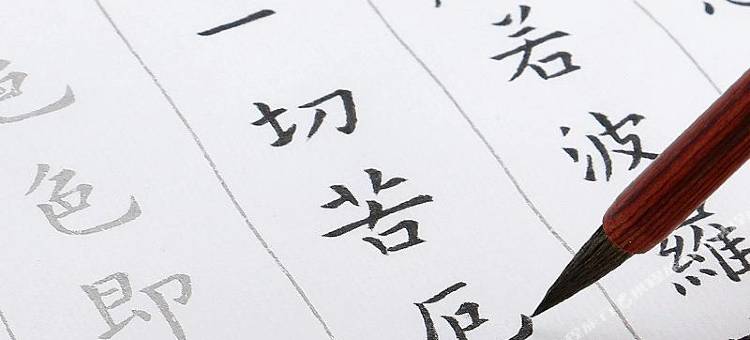 若波羅
一切苦厄
色色即